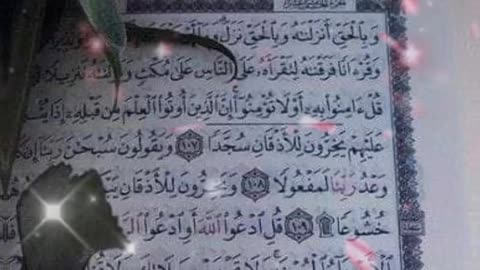 وَبِٱلْحَقِّ أَنزَلْنَٰهُ وَبِٱلْحَقِّ نَزَلَ
وَقُرْءَانًا فَرَقْنَٰهُ لِتَقْرَأَهُۥ عَلَى ٱلنَّاسِ عَلَىٰ مُكْثٍ
قُلْ ءَامِنُوا۟ بِهِۦٓ أَوْ لَا تُؤْمِنُوٓا۟ إِنَّ ٱلَّذِينَ أُوتُوا۟ ٱلْعِلْمَ مِن قَبْلِهِۦٓ إِذَا
عَلَيْهِمْ يَخِرُّونَ لِلْأَذْقَانِ سُجَّدًا ١٠٧ وَيَقُولُونَ سُبْحَٰنَ رَبِّنَآ
وَعْدُ رَبِّنَا لَمَفْعُولًا ١٠٨ وَيَخِرُّونَ لِلْأَذْقَانِ
خُشُوعًا ۩ ١٠٩ قُلِ ٱدْعُوا۟ ٱللَّهَ أَوِ ٱدْعُوا۟